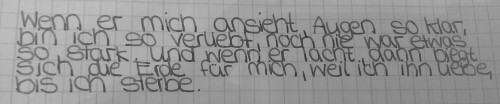 Wenn er mich ansieht, Augen so klar,
bin ich so verliebt, noch nie war etwas
so stark, und wenn er lacht, dann biegt
sich die Erde für mich, weil ich ihn liebe,
bis ich sterbe.